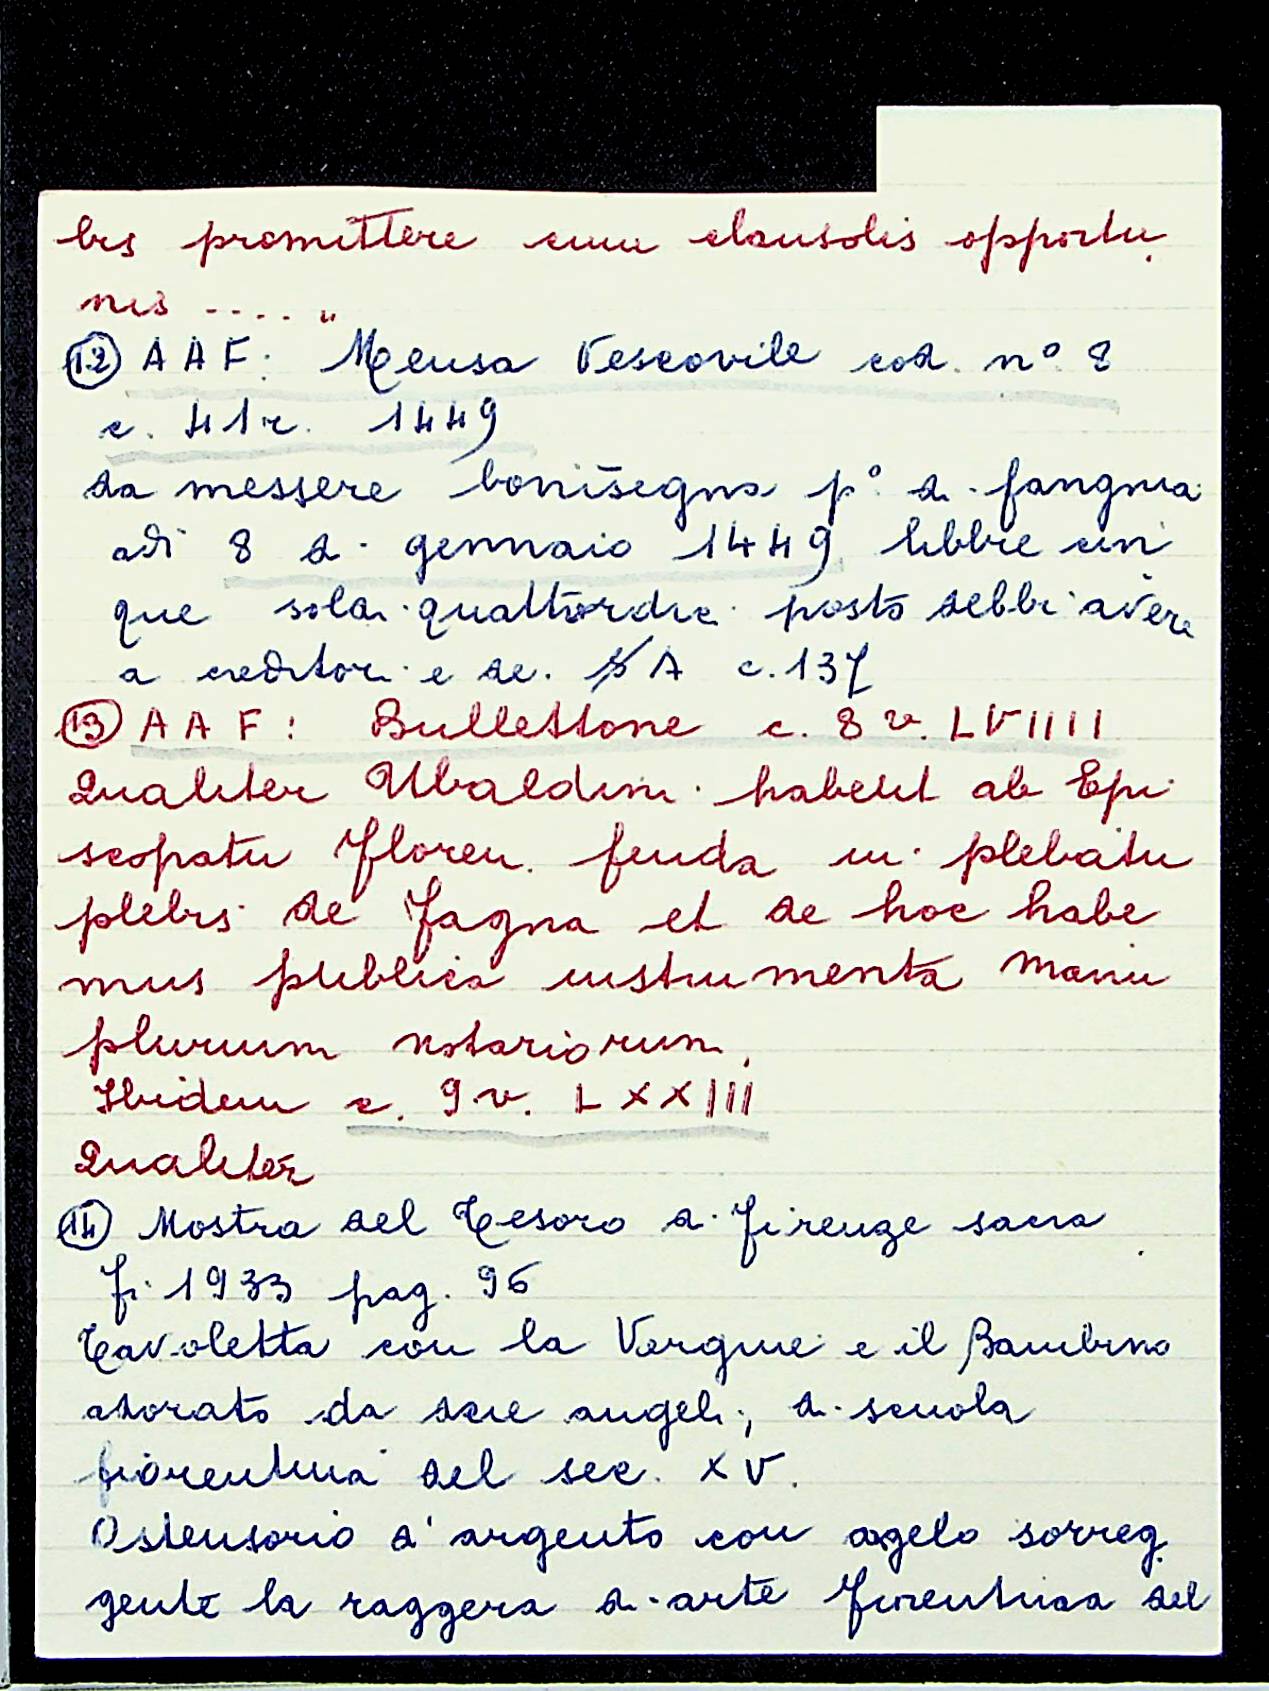 bis promittere cum clausolis opportu
nis .... "
12 AAF: Mensa Vescovile cod. n° 8
c. 41r. 1449
da messere bonisegna p° di fangnia
adi 8 di gennaio 1449 libbre cin
que soldi quattordici posto debbi avere
a creditori e de. A c. 137
13 AAF: Bullettone c. 8 v. LVIIII
Qualiter Ubaldini habent ab Epi
scopatu Floren. feuda in plebatu
plebis de Fagna et de hoc habe
mus publica instrumenta manu
plurium notariorum.
Ibidem c. 9v. LXXIII
Qualiter
14 Mostra del Tesoro di Firenze sacra
Fi 1933 pag. 96
Tavoletta con la Vergine e il Bambino
adorato da due angeli, di scuola
fiorentina del sec. XV.
Ostensorio d'argento con agelo sorreg
gente la raggera di arte fiorentina del